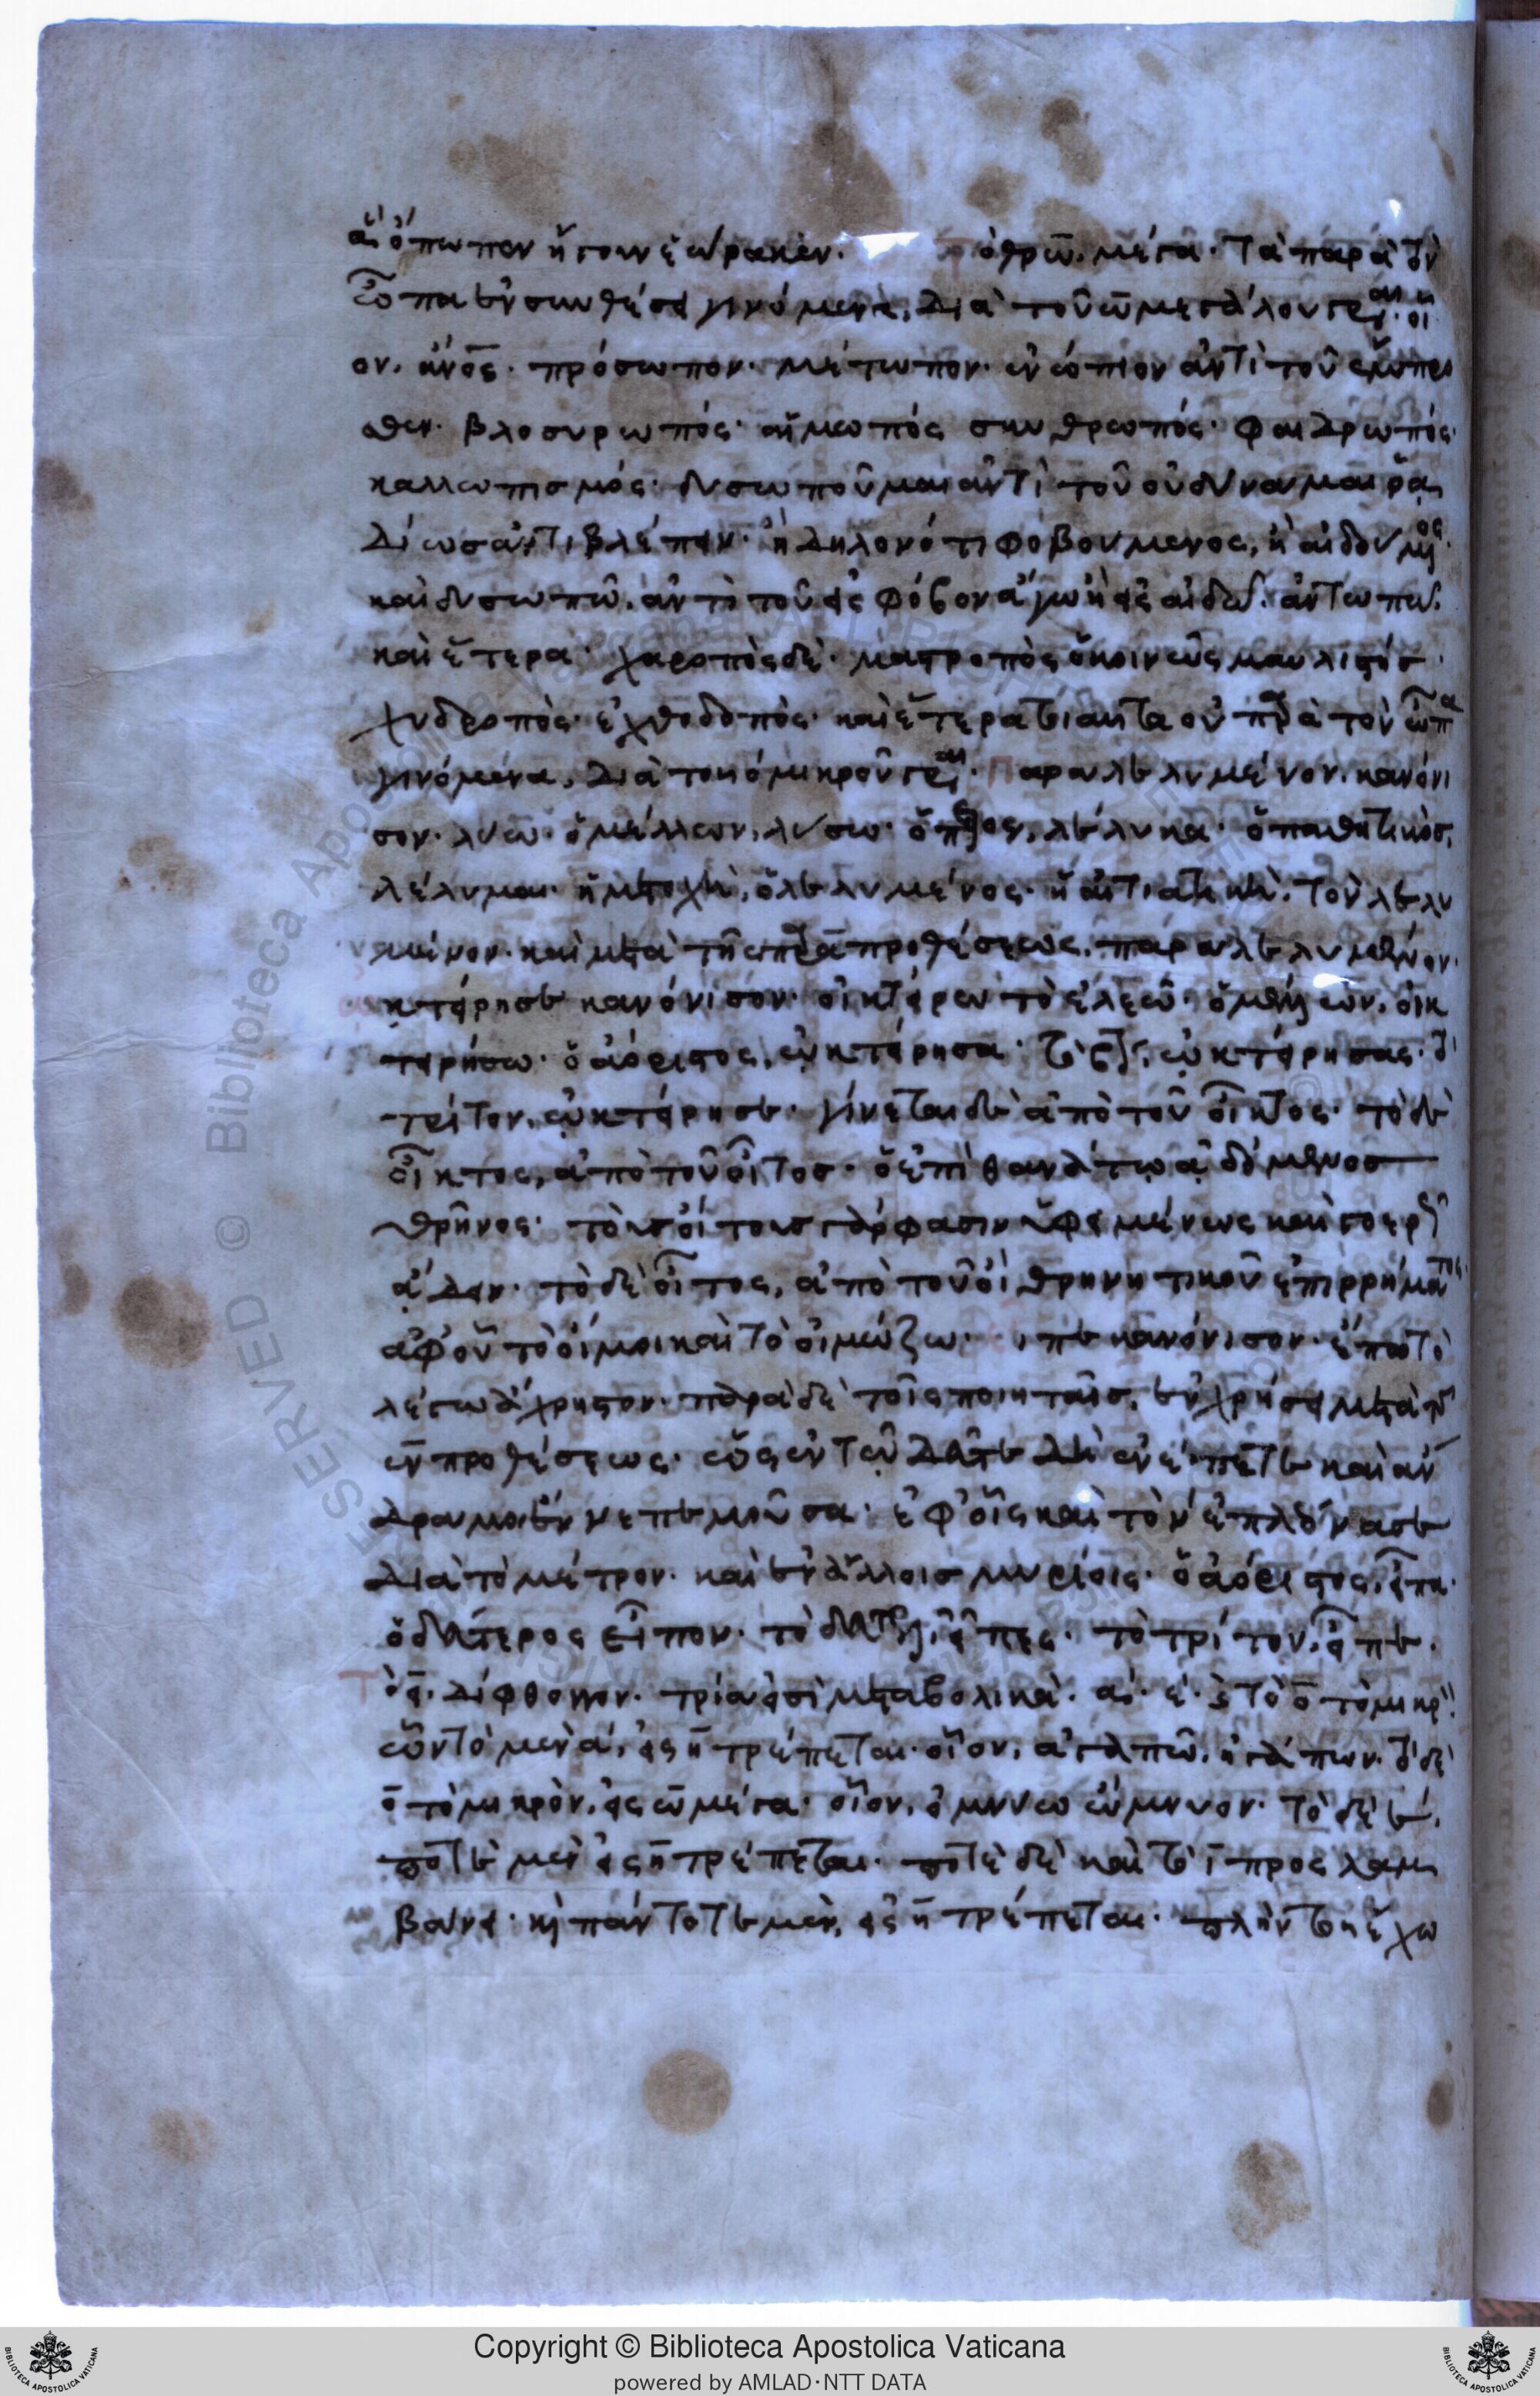 ὄπωπεν ἤγουν ἑώρακεν. Τὸ θρω. μέγα. τὰ παρὰ τὸν
ὦπα ἐν συνθέσει γινόμενα, διὰ τοῦ ω μεγάλου γρ. οἷ
ον. ἄνος. πρόσωπον. μέτωπον. ἐνώπιον ἀντὶ τοῦ ἔμπρο
θεν. βλοσυρωπός. αἱμωπός σκυθρωπός. φαιδρωπός.
καλλωπισμός. δυσωποῦμαι ἀντὶ τοῦ οὐ δύναμαι ῥᾳ
δίως ἀντιβλέπειν. ἢ δηλονότι φοβούμενος, ἢ αἰδούμενος.
καὶ δυσωπῶ. ἀντὶ τοῦ εἰς φόβον ἄγω ἢ εἰς αἰδῶ. ἀντωπῶ.
καὶ ἕτερα. χαροπὸς δὲ. μαστροπὸς ὁ κοινῶς μαυλιστής.
χυδροπὸς. ἐχθοδοπὸς. καὶ ἕτερα τοιαῦτα οὐ παρὰ τὸν ὦπα
γινόμενα, διὰ τοῦ ο μικροῦ γρ. Παραλελυμένον. κανόνι
σον. λύω. ὁ μέλλων, λύσω. ὁ λέλυκα. ὁ παθητικὸς,
λέλυμαι. ἡ μετοχὴ, ὁ λελυμένος. ἡ αἰτιατικὴ. τὸν λελυ
μένον. καὶ μετὰ τῆς παρα προθέσεως, παραλελυμένον.
κτείρησε κανόνισον. οἰκτείρω τὸ ἐλεῶ. ὁ μέλλων. οἰκ
τειρήσω. ὁ ἀόριστος, ᾠκτείρησα. τὸ β, ᾠκτείρησας. τὸ
τρίτον, ᾠκτείρησε. γίνεται δὲ ἀπὸ τοῦ οἶκτος. τὸ δὲ
οἶκτος, ἀπὸ τοῦ οἶτος. ὁ ἐπὶ θανάτῳ ᾀδόμενος
θρῆνος. τοὺς οἴτους γάρ φασιν
ᾄδειν. τὸ δὲ οἶτος, ἀπὸ τοῦ οἲ θρηνητικοῦ ἐπιρρήματος.
ἀφ' οὗ τὸ οἴμοι καὶ τὸ οἰμώζω. ιπε κανόνισον. ἔπω τὸ
λέγω ἄχρηστον. παρὰ δὲ τοῖς ποιηταῖς, ἐν χρήσει μετὰ τῆς
εν προθέσεως. ὡς ἐν τῷ δεῦτε δὴ ἐνέπετε καὶ ἄν
δρα μοι ἔννεπε μοῦσα. ἐφ' οἷς καὶ τὸ ν ἐπλεόνασε
διὰ τὸ μέτρον. καὶ ἐν ἄλλοις μυρίοις. ὁ ἀόριστος, εἶπα.
ὁ δεύτερος εἶπον. τὸ δεύτερον, εἶπες. τὸ τρίτον, εἶπε.
Τὸ ει. δίφθογγον. τρία εἰσὶ μεταβολικὰ. α. ε. καὶ τὸ ο τὸ μικρόν.
ὧν τὸ μὲν α, εἰς η τρέπεται. οἷον, ἀγαπῶ, ἠγάπων. τὸ δὲ
ο τὸ μικρὸν, εἰς ω μέγα. οἷον, ὀμνύω ὤμνυον. τὸ δὲ ε,
ποτὲ μὲν εἰς η τρέπεται. ποτὲ δὲ καὶ τὸ ι προσλαμ
βάνει. καὶ πάντοτε μὲν, εἰς η τρέπεται. πλὴν τοῦ ἔχω
Copyright © Biblioteca Apostolica Vaticana
powered by AMLAD·NTT DATA